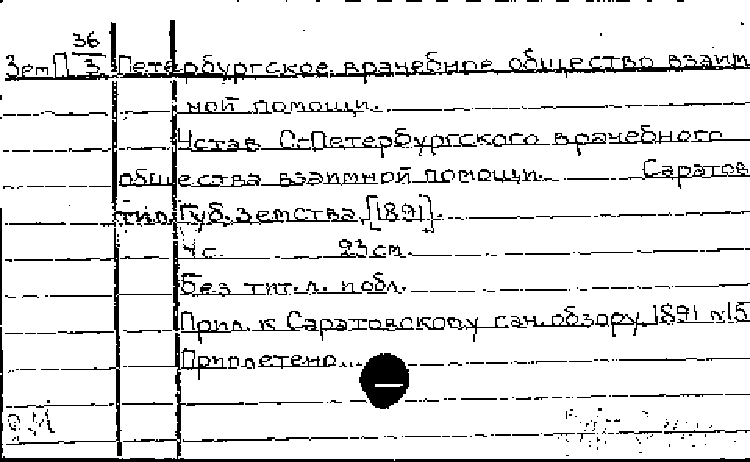 ЗемП 36/3 Петербургское врачебное общество взаим
ной помощи.
Устав С-Петербургского врачебного
общества взаимной помощи. Саратов
тип. Губ. Земства, [1891].
4 с. 23 см.
Без тит. л. и обл.
Прил. к Саратовскому сан. обзору. 1891 №15
Приплетено.